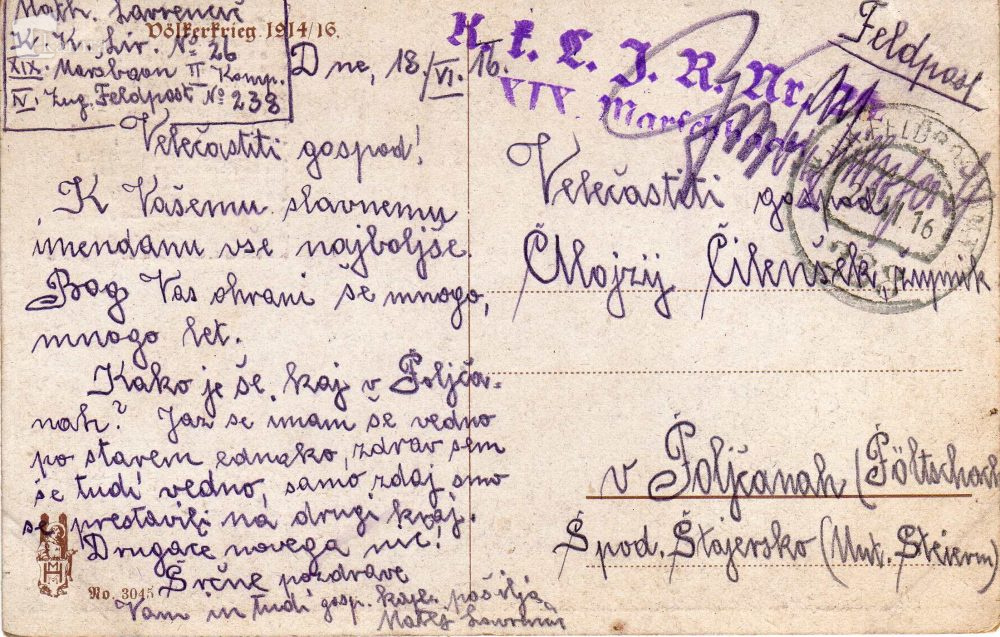 Math. Lavrenčič
K. K. Lir. No 26
XIX. Maršbaon II Komp.
IV. Zug. Feldpost No 238
Völkerkrieg 1914/16.
Dne, 18./VI. 16.
Velečastiti gospod!
K Vašemu slavnemu
imendanu vse najboljše.
Bog Vas ohrani še mnogo,
mnogo let.
Kako je še kaj v Poljča-
nah? Jaz se imam še vedno
po starem ednako, zdrav sem
še tudi vedno, samo zdaj smo
se prestavili na drugi kraj.
Drugače novega nič!
Srčne pozdrave
Vam in tudi gosp. kapl. pošilja
Matej Lavrenčič
No. 3045
K. k. L. I. R. Nr.
XIX.
Feldpost
16
Velečastiti gospod
Alojzij Čilenšek, župnik
v Poljčanah (Pöltschach
Spod. Štajersko (Unt. Steierm)